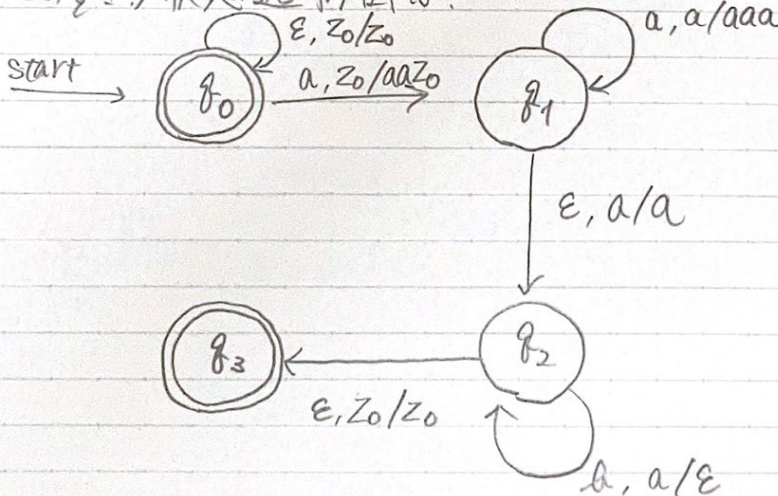 ε, Z₀/Z₀
a, a/aaa
start
a, Z₀/aaZ₀
q₀
q₁
ε, a/a
q₃
q₂
ε, Z₀/Z₀
b, a/ε